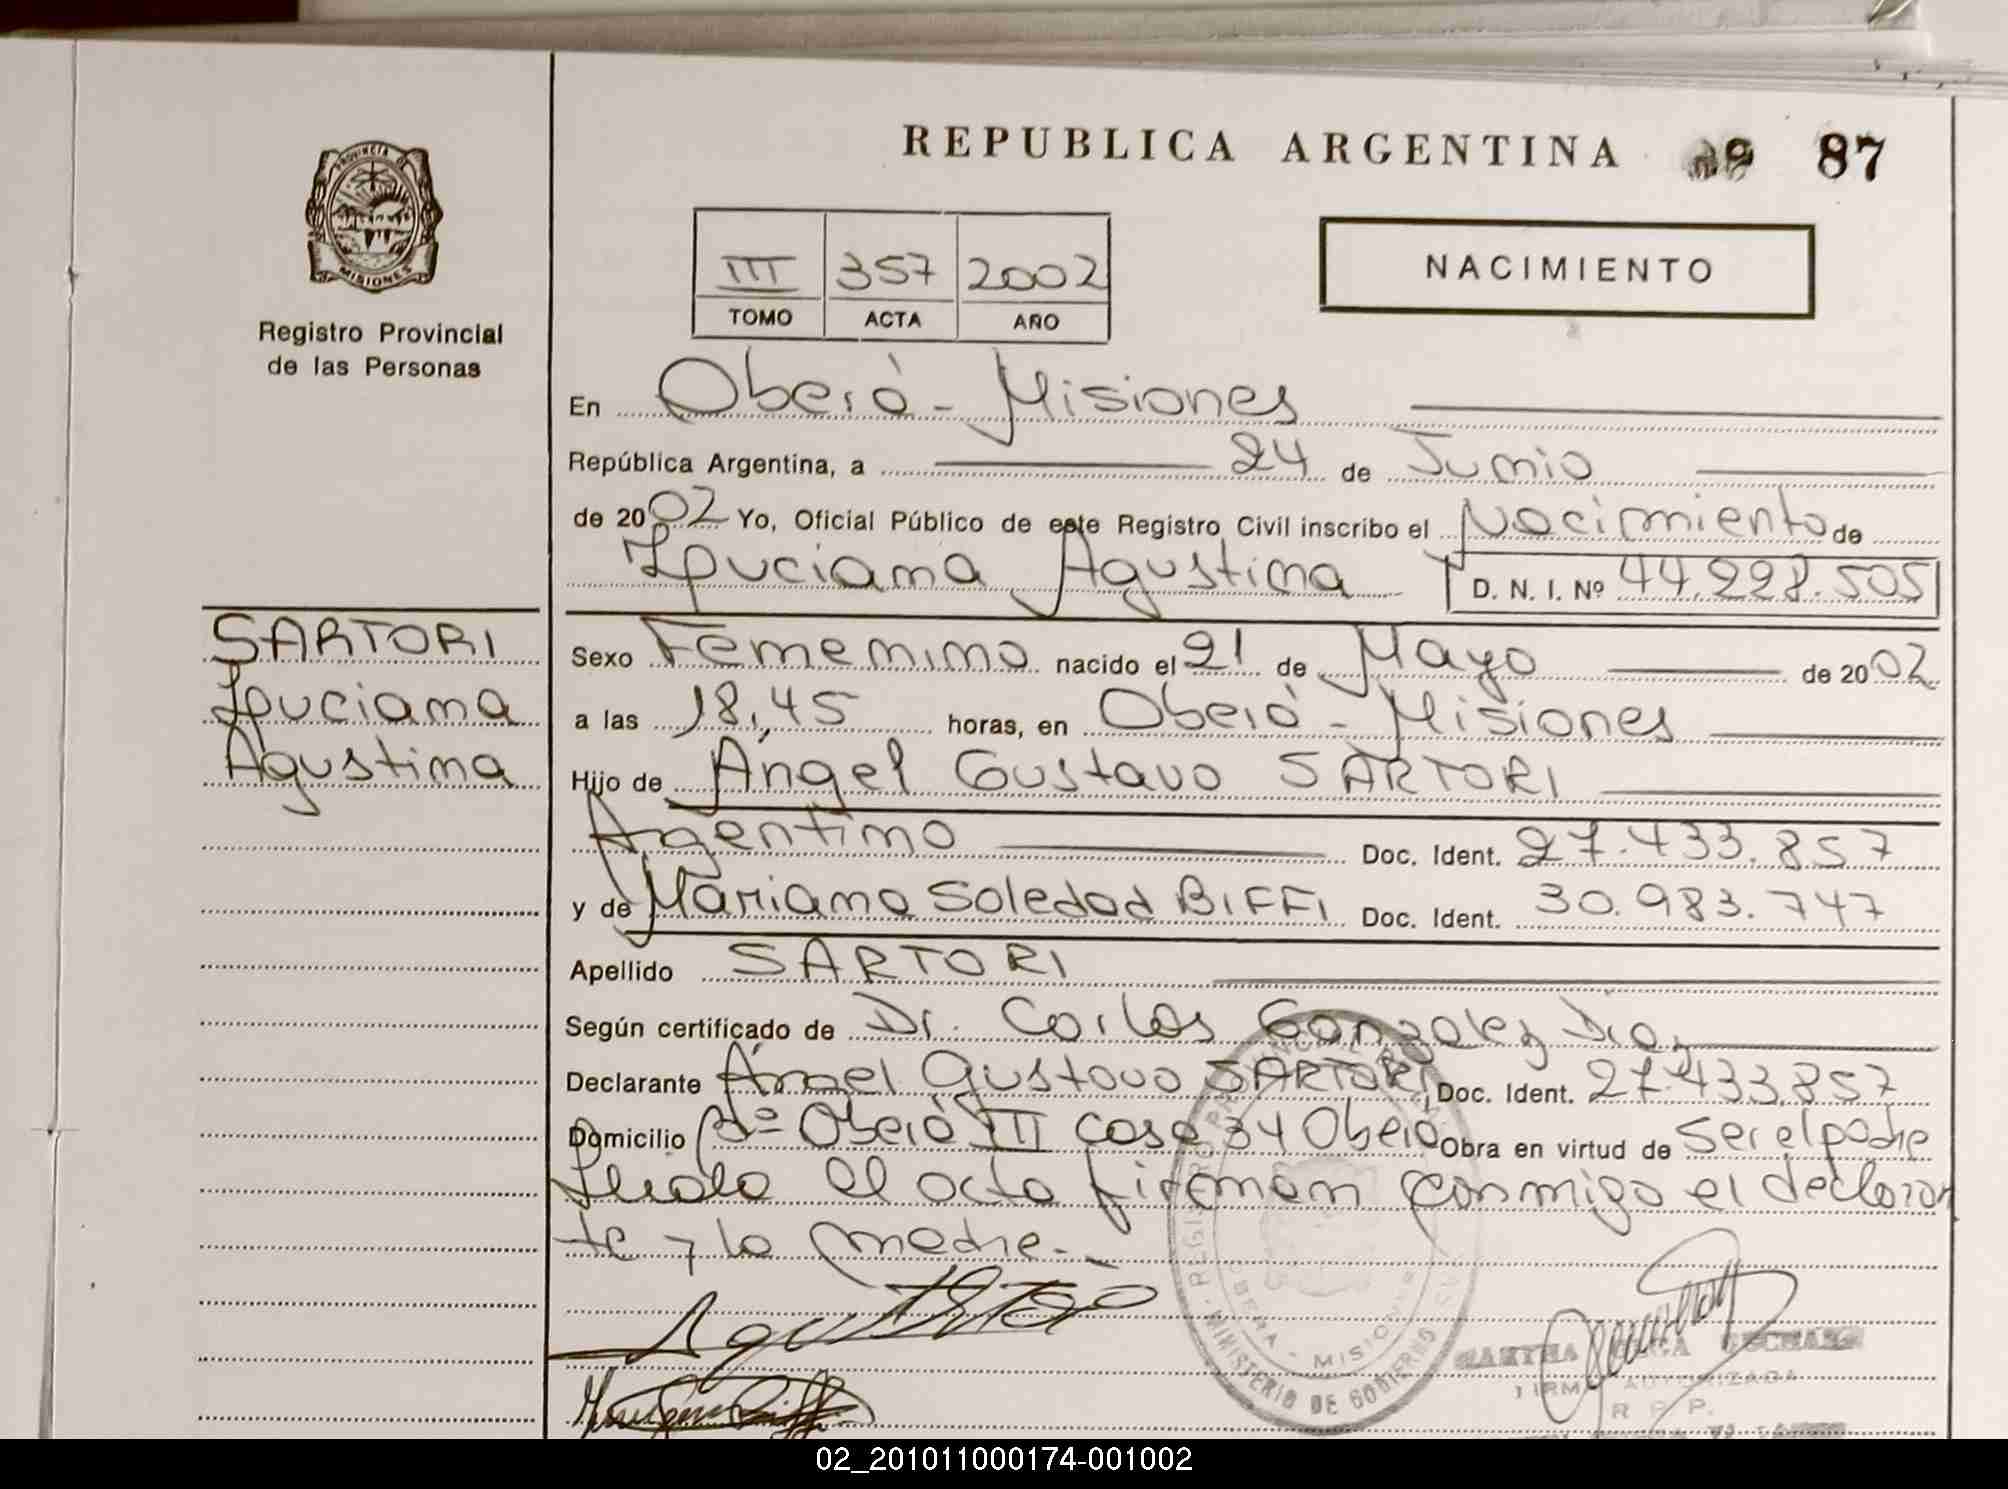 REPUBLICA ARGENTINA 87
PROVINCIA DE
MISIONES
Registro Provincial
de las Personas
III 357 2002
TOMO ACTA AÑO
NACIMIENTO
En Oberá - Misiones
República Argentina, a 24 de Junio
de 2002 Yo, Oficial Público de este Registro Civil inscribo el Nacimiento de
Luciana Agustina D. N. I. Nº 44.228.505
SARTORI
Luciana
Agustina
Sexo Femenino nacido el 21 de Mayo de 2002
a las 18,45 horas, en Oberá - Misiones
Hijo de Ángel Gustavo SARTORI
Argentino Doc. Ident. 27.433.857
y de Mariana Soledad BIFFI Doc. Ident. 30.983.747
Apellido SARTORI
Según certificado de Dr. Carlos Gonzalez Dia
Declarante Ángel Gustavo SARTORI Doc. Ident. 27.433.857
Domicilio Bº Oberá III Casa 34 Oberá Obra en virtud de ser el padre
Leída el acta firman conmigo el declaran
te y la madre.-
OBERA - MISIONES
MINISTERIO DE GOBIERNO
MARTHA
FIRMA AUTORIZADA
R. P. P.
02_201011000174-001002